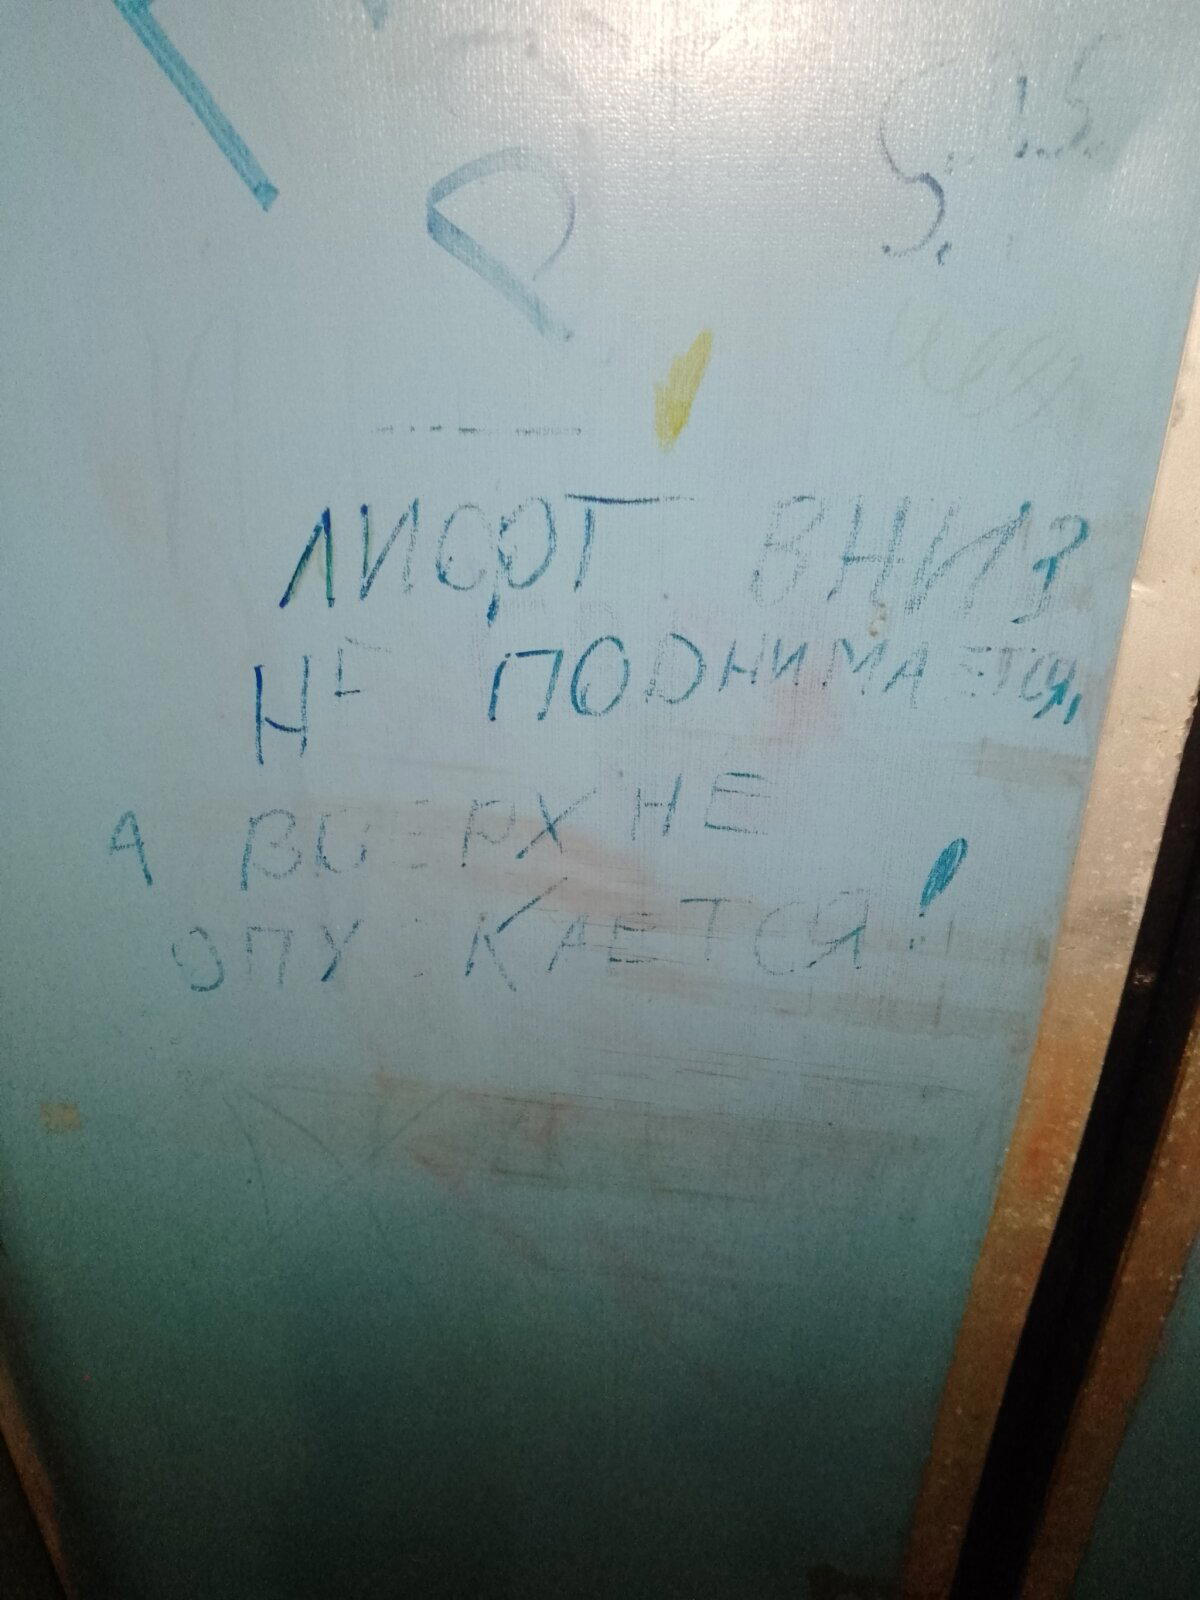 ЛИФТ ВНИЗ
НЕ ПОДНИМАЕТСЯ,
А ВВЕРХ НЕ
ОПУСКАЕТСЯ!